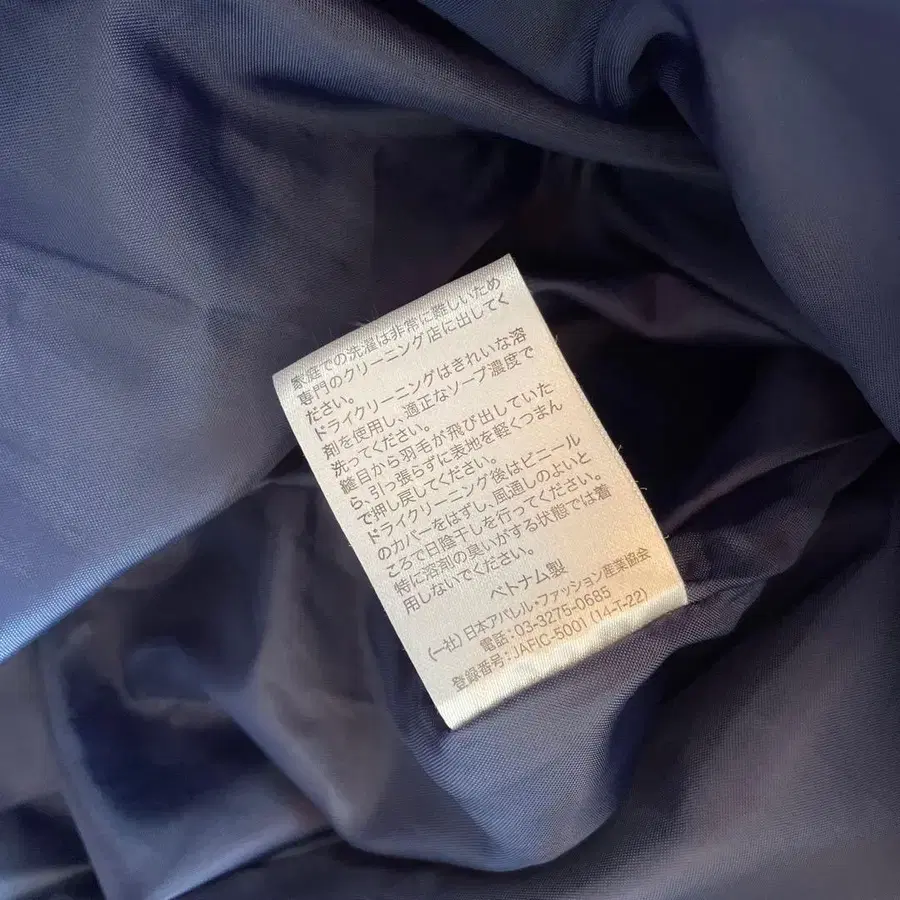 家庭での洗濯は非常に難しいため
専門のクリーニング店に出してく
ださい。
ドライクリーニングはきれいな溶
剤を使用し、適正なソープ濃度で
洗ってください。
縫目から羽毛が飛び出していた
ら、引っ張らずに表地を軽くつまん
で押し戻してください。
ドライクリーニング後はビニール
のカバーをはずし、風通しのよいと
ころで日陰干しを行ってください。
特に溶剤の臭いがする状態では着
用しないでください。
ベトナム製
(一社)日本アパレル・ファッション産業協会
電話:03-3275-0685
登録番号:JAFIC-5001 (14-T-22)